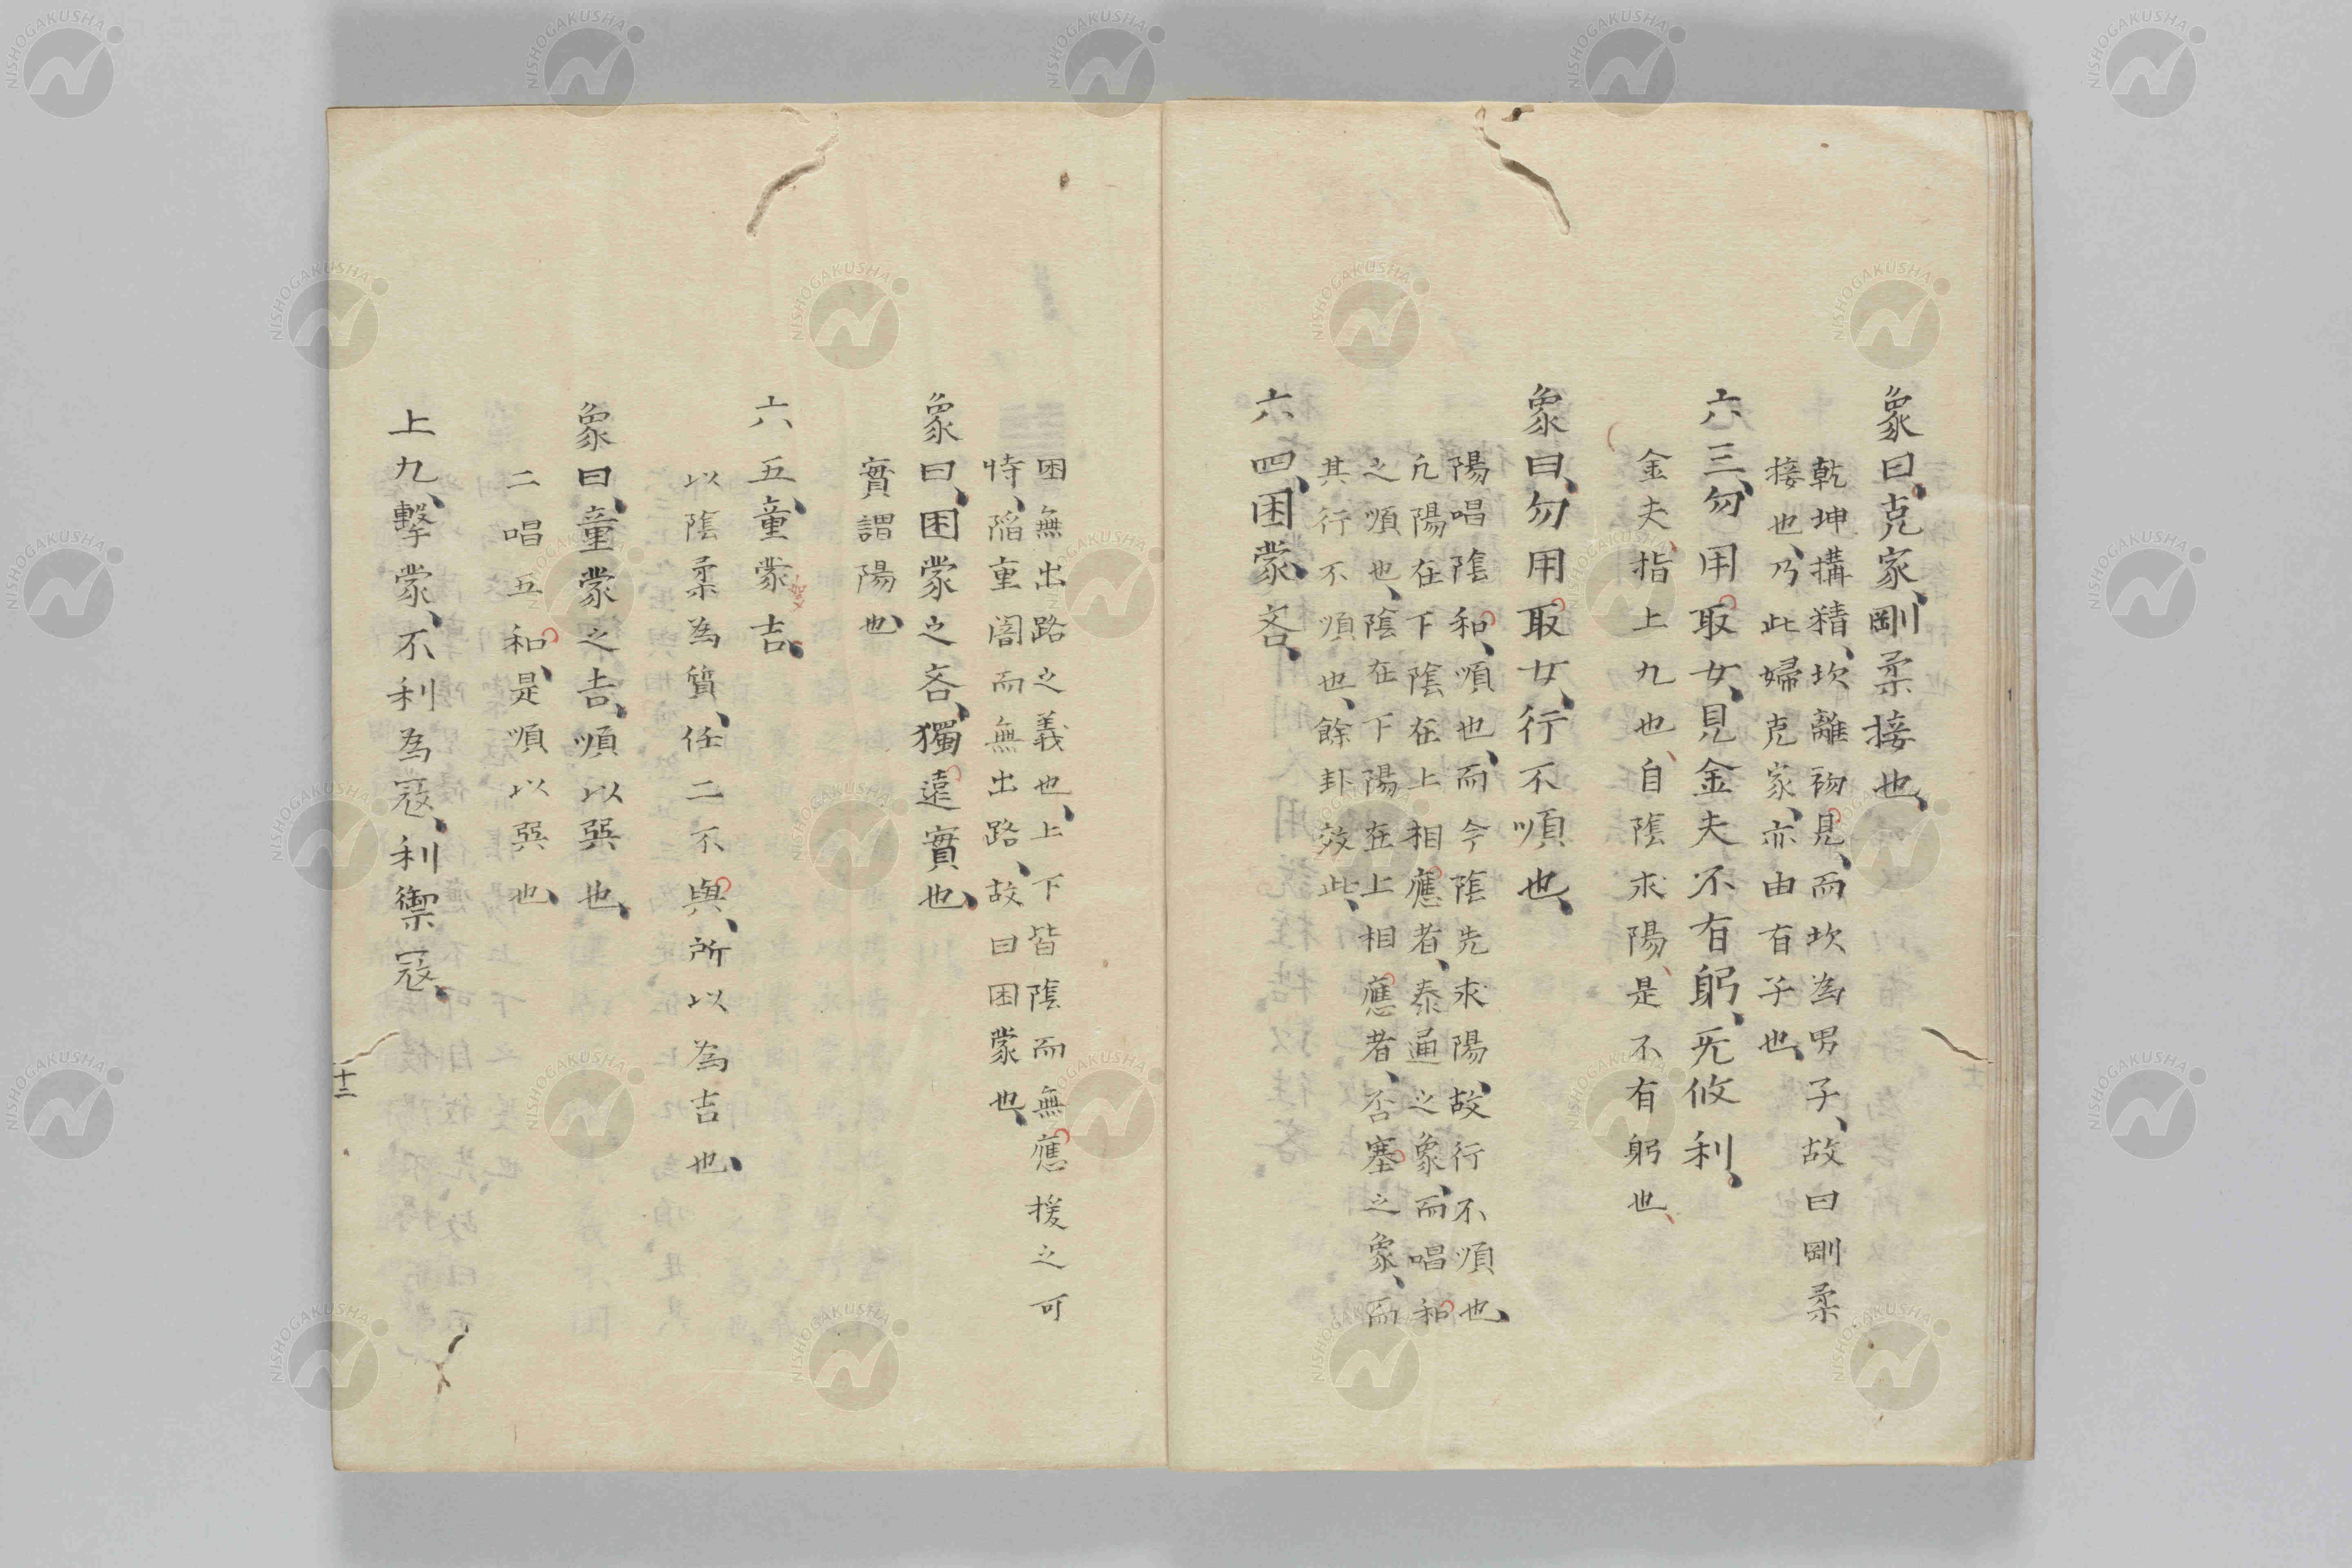 象曰、克家、剛柔接也、
乾坤搆精、坎離初見、而坎為男子、故曰剛柔
接也、乃此婦克家、亦由有子也、
六三、勿用取女、見金夫不有躬、无攸利、
金夫、指上九也、自陰求陽、是不有躬也、
象曰、勿用取女、行不順也、
陽唱陰和、順也、而今陰先求陽、故行不順也、
凢陽在下陰在上相應者、泰通之象、而唱和
之順也、陰在下陽在上相應者、否塞之象、而
其行不順也、餘卦效此、
六四、困蒙、吝、
困無出路之義也、上下皆陰而無應援之可
恃、陷重闇而無出路、故曰困蒙也、
象曰、困蒙之吝、獨遠實也、
實謂陽也、
六五、童蒙、吉、
以陰柔為質、任二不與、所以為吉也、
象曰、童蒙之吉、順以巽也、
二唱五和、是順以巽也、
上九、擊蒙、不利為冦、利禦冦、
十二
NISHOGAKUSHA